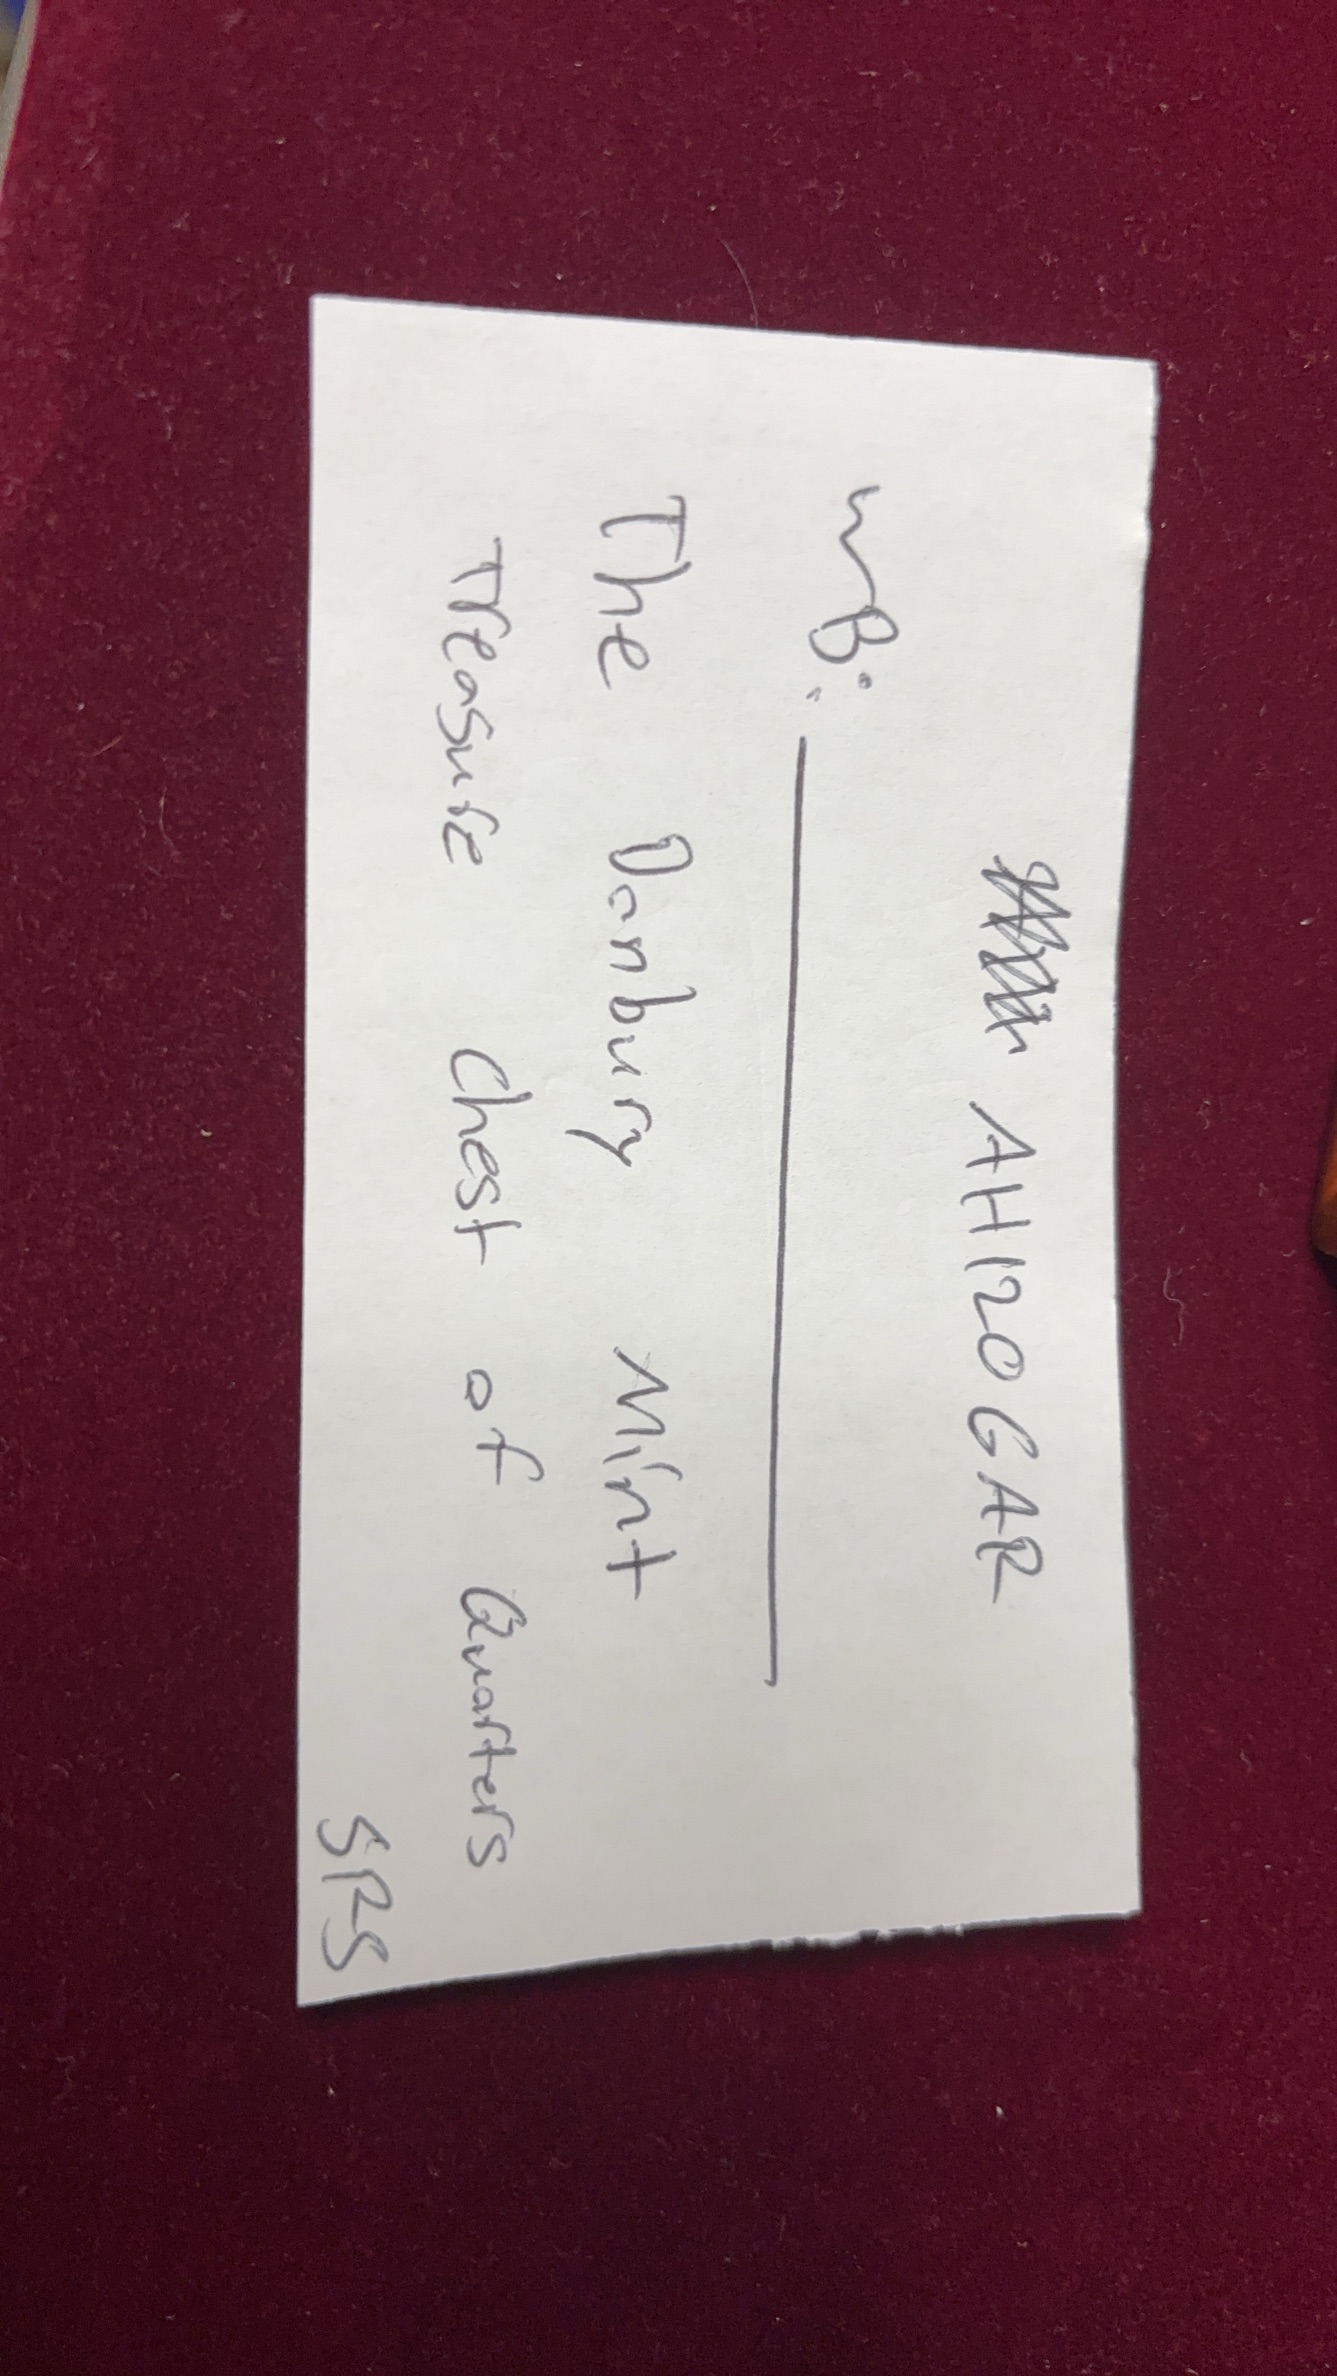 AH120GAR
WB:
The Danbury Mint
Treasure Chest of Quarters
SRS